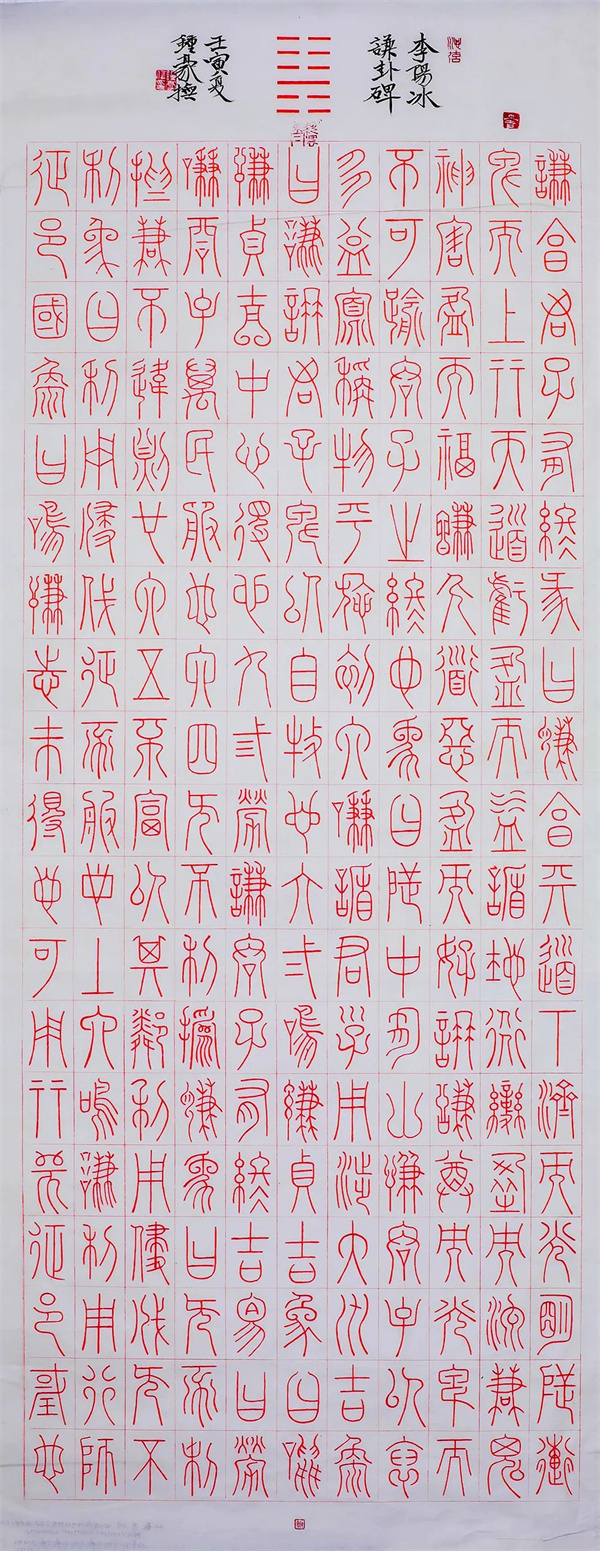 李陽冰
謙卦碑
壬寅夏
鍾豪撫
謙亨君子有終彖曰謙亨天道下濟而光明地道
卑而上行天道虧盈而益謙地道變盈而流謙鬼
神害盈而福謙人道惡盈而好謙謙尊而光卑而
不可踰君子之終也象曰地中有山謙君子以裒
多益寡稱物平施初六謙謙君子用涉大川吉象
曰謙謙君子卑以自牧也六二鳴謙貞吉象曰鳴
謙貞吉中心得也九三勞謙君子有終吉象曰勞
謙君子萬民服也六四无不利撝謙象曰无不利
撝謙不違則也六五不富以其鄰利用侵伐无不
利象曰利用侵伐征不服也上六鳴謙利用行師
征邑國象曰鳴謙志未得也可用行師征邑國也